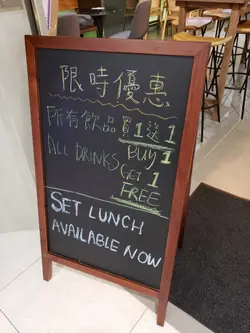 限時優惠
所有飲品 買1送1
ALL DRINKS BUY 1
GET 1
FREE
SET LUNCH
AVAILABLE NOW